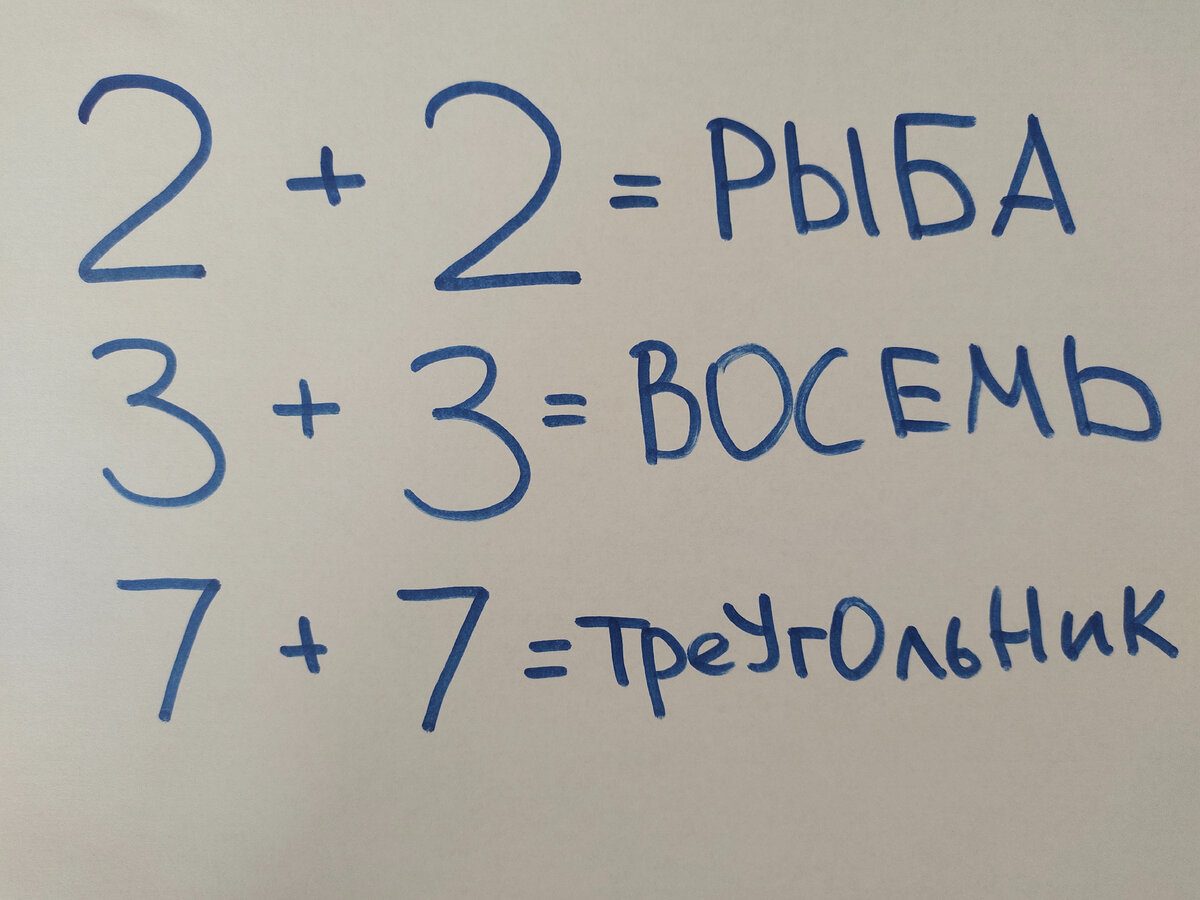 2 + 2 = РЫБА
3 + 3 = ВОСЕМЬ
7 + 7 = треУгОльНик